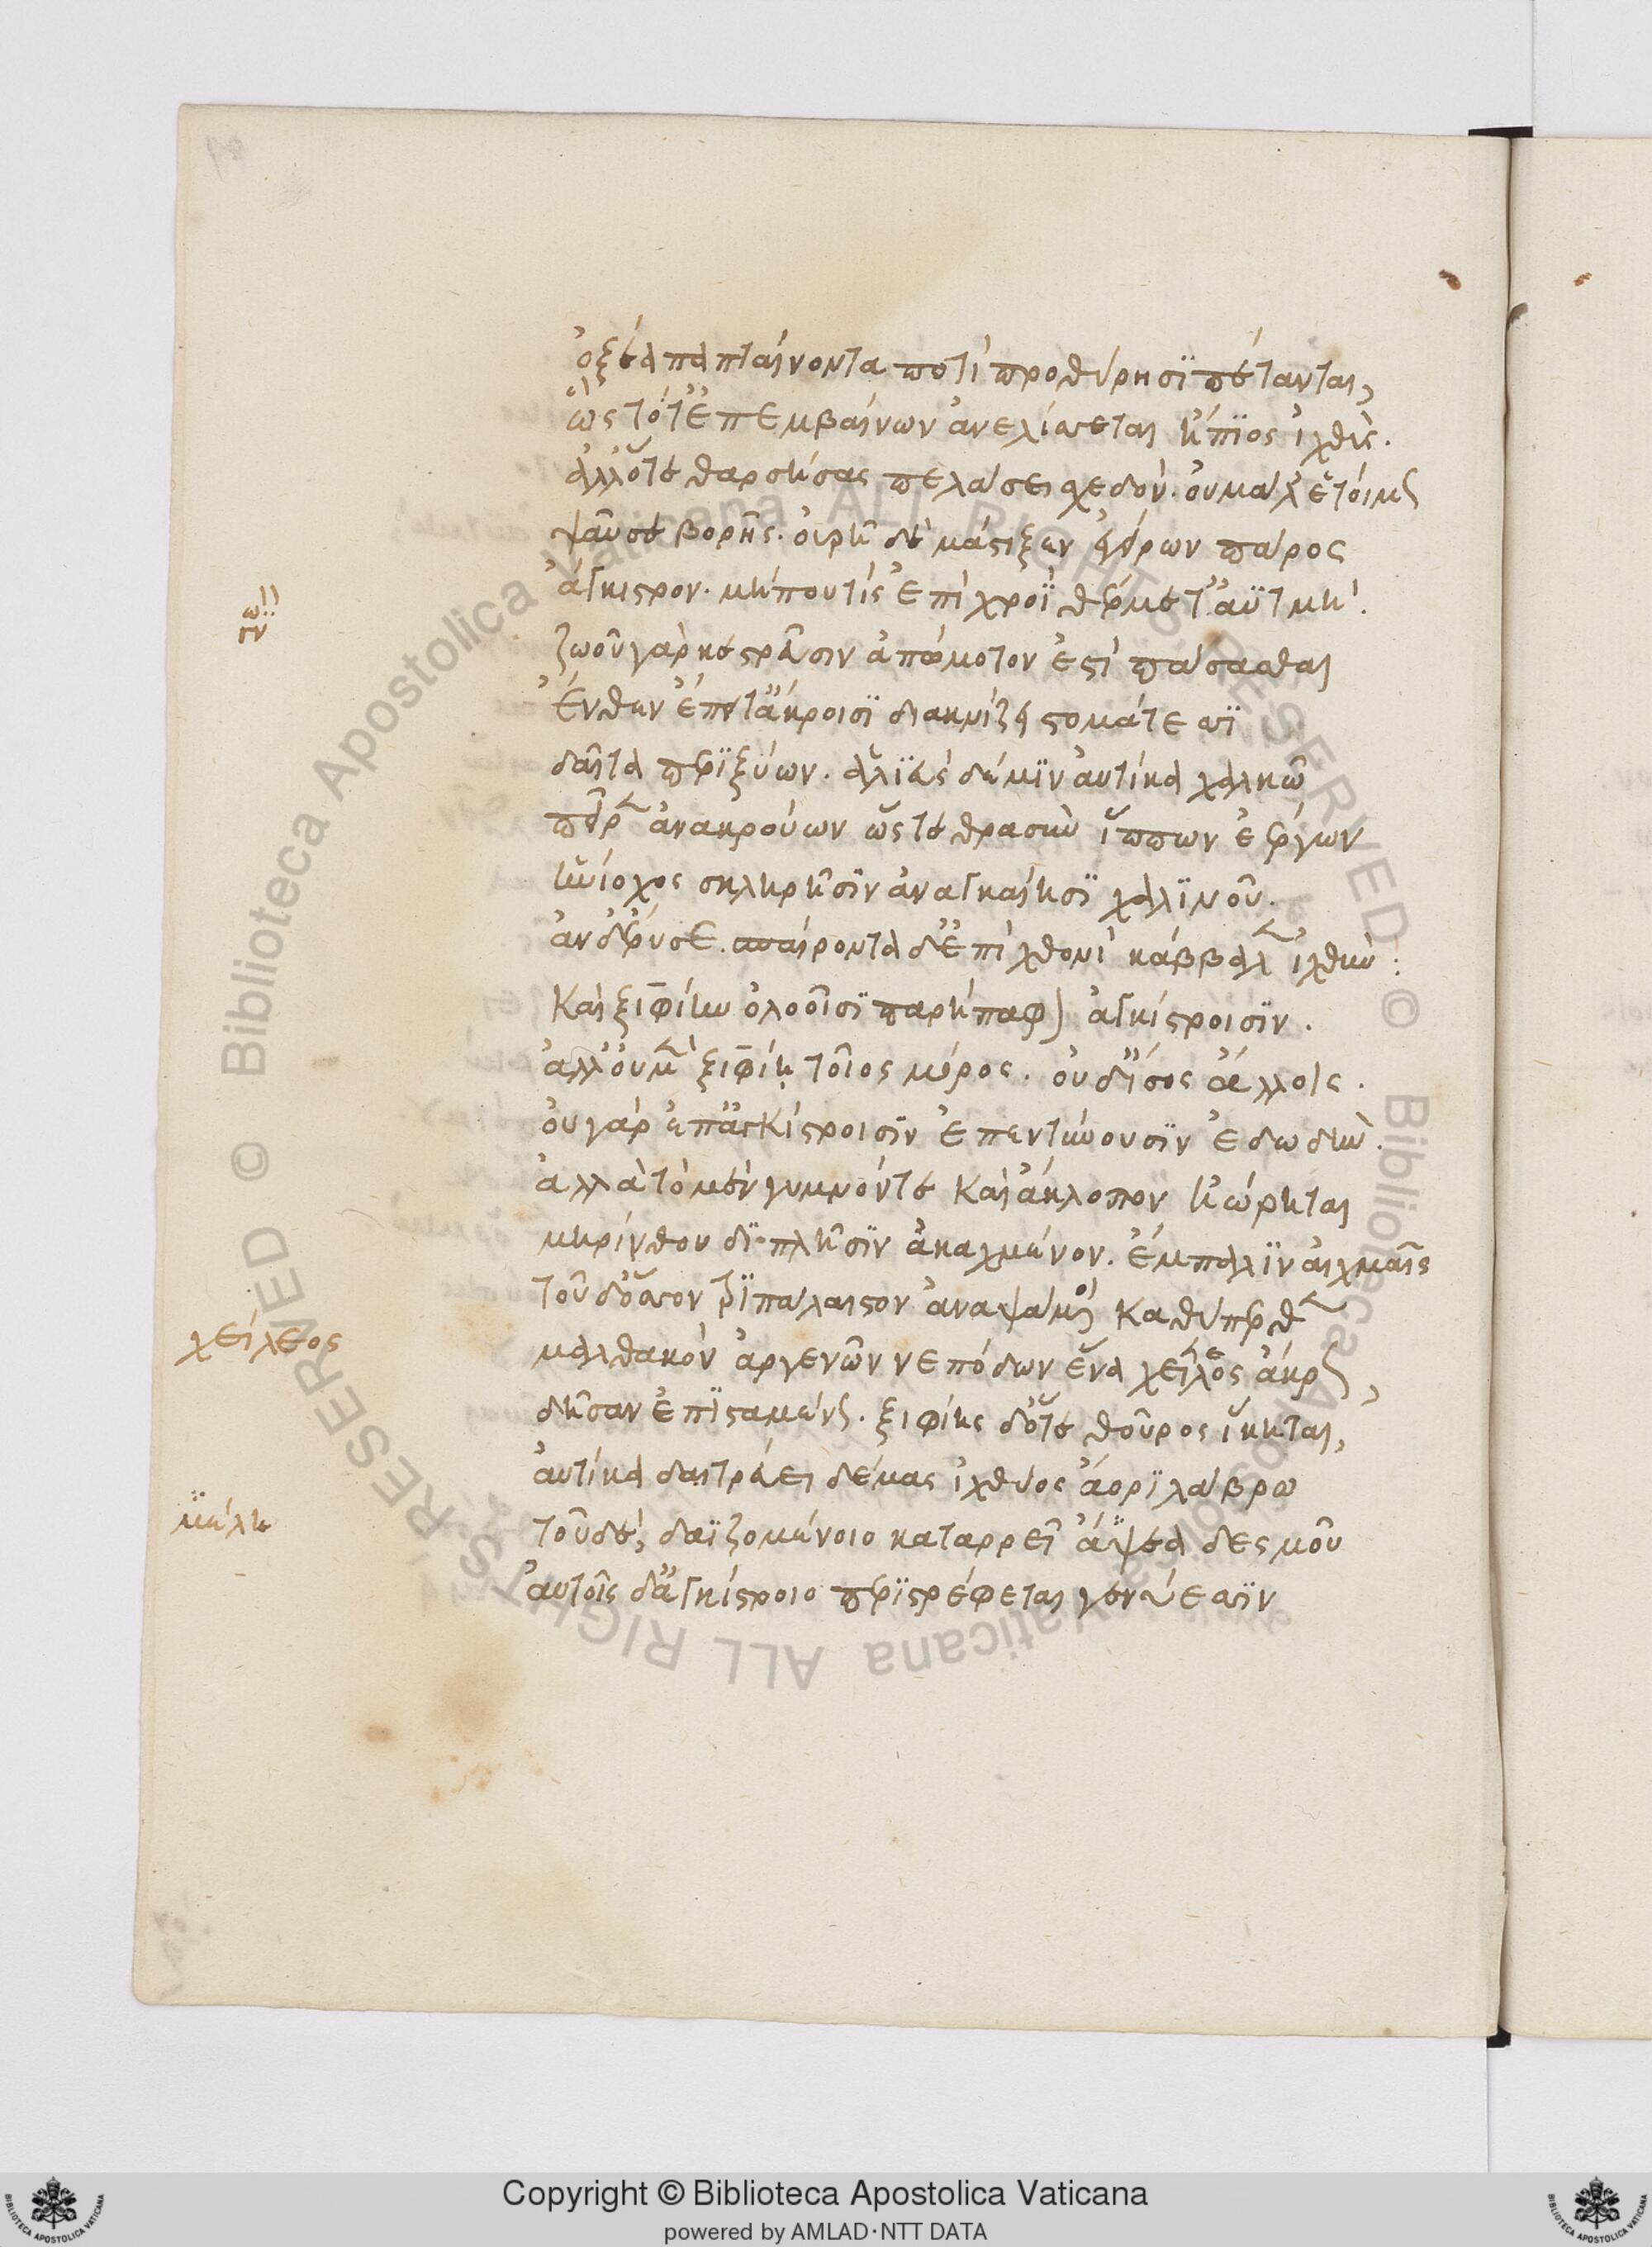 ὀξέα παπταίνοντα ποτὶ προθύρησϊ πέτανται,
ὣς τότ' ἐπεμβαίνων ἀνελίσσεται ἤπϊος ἰχθὺς.
ἄλλοτε θαρσήσας πελάσει σχεδόν. οὐ μάλ' ἑτοίμως
ψαῦσε βορῆς. οὐρῆ δὲ μάστιξεν ἑδρων πάρος
ἄγκιστρον. μήπου τίς ἐπὶ χροῒ θέρμετ' ἀϋτμή.
ζωοῦ γὰρ κεστρεῦσιν ἀπώμοτον ἐστὶ πάσασθαι
ἔνθεν ἔπειτ' ἄκροισϊ διακνίζει στομάτεσσϊ
δαῖτα περϊξύων. ἁλϊεὺς δέ μϊν αὐτίκα χαλκῶ
πεῖρεν ἀνακρούων ὥστε θρασὺν ἵππων ἐέργων
ἡνίοχος σκληρῆσϊν ἀναγκαίησϊ χαλϊνοῦ.
ἀνδέρυσε. σπαίροντα δ' ἐπὶ χθονὶ κάββαλεν ἰχθύν:
Καὶ ξιφίην ὀλοοῖσϊ παρήπαφον ἀγκίστροισϊν.
ἀλλ' οὐ μὲν ξιφίη τοῖος μόρος. οὐδ' ἴσος ἄλλοις.
οὐ γὰρ ἐπ' ἀγκίστροισϊν ἐπεντύουσϊν ἐδωδήν.
ἀλλὰ τὸ μὲν γυμνόντε καὶ ἄκλοπον ἠώρηται
μηρίνθου δϊπλῆσϊν ἀκαχμένον. ἔμπαλϊν αἰχμαῖς
τοῦ δ' ὅσσον τρϊπάλαιστον ἀναψάμενοι καθύπερθεν
μαλθακὸν ἀργενῶν νεπόδων ἕνα χείλεος ἄκρου,
δῆσαν ἐπϊσταμένως. ξιφίης δ' ὅτε θοῦρος ἵκηται,
αὐτίκα δαιτρεύει δέμας ἰχθύος ἄορϊ λάβρω
τοῦ δέ, δαϊζομένοιο καταρρεῖ ἅψεα δεσμοῦ
αὐτοῖς δ' ἀγκίστροιο περϊστρέφεται γενύεσσϊν
χείλεος
μέλη